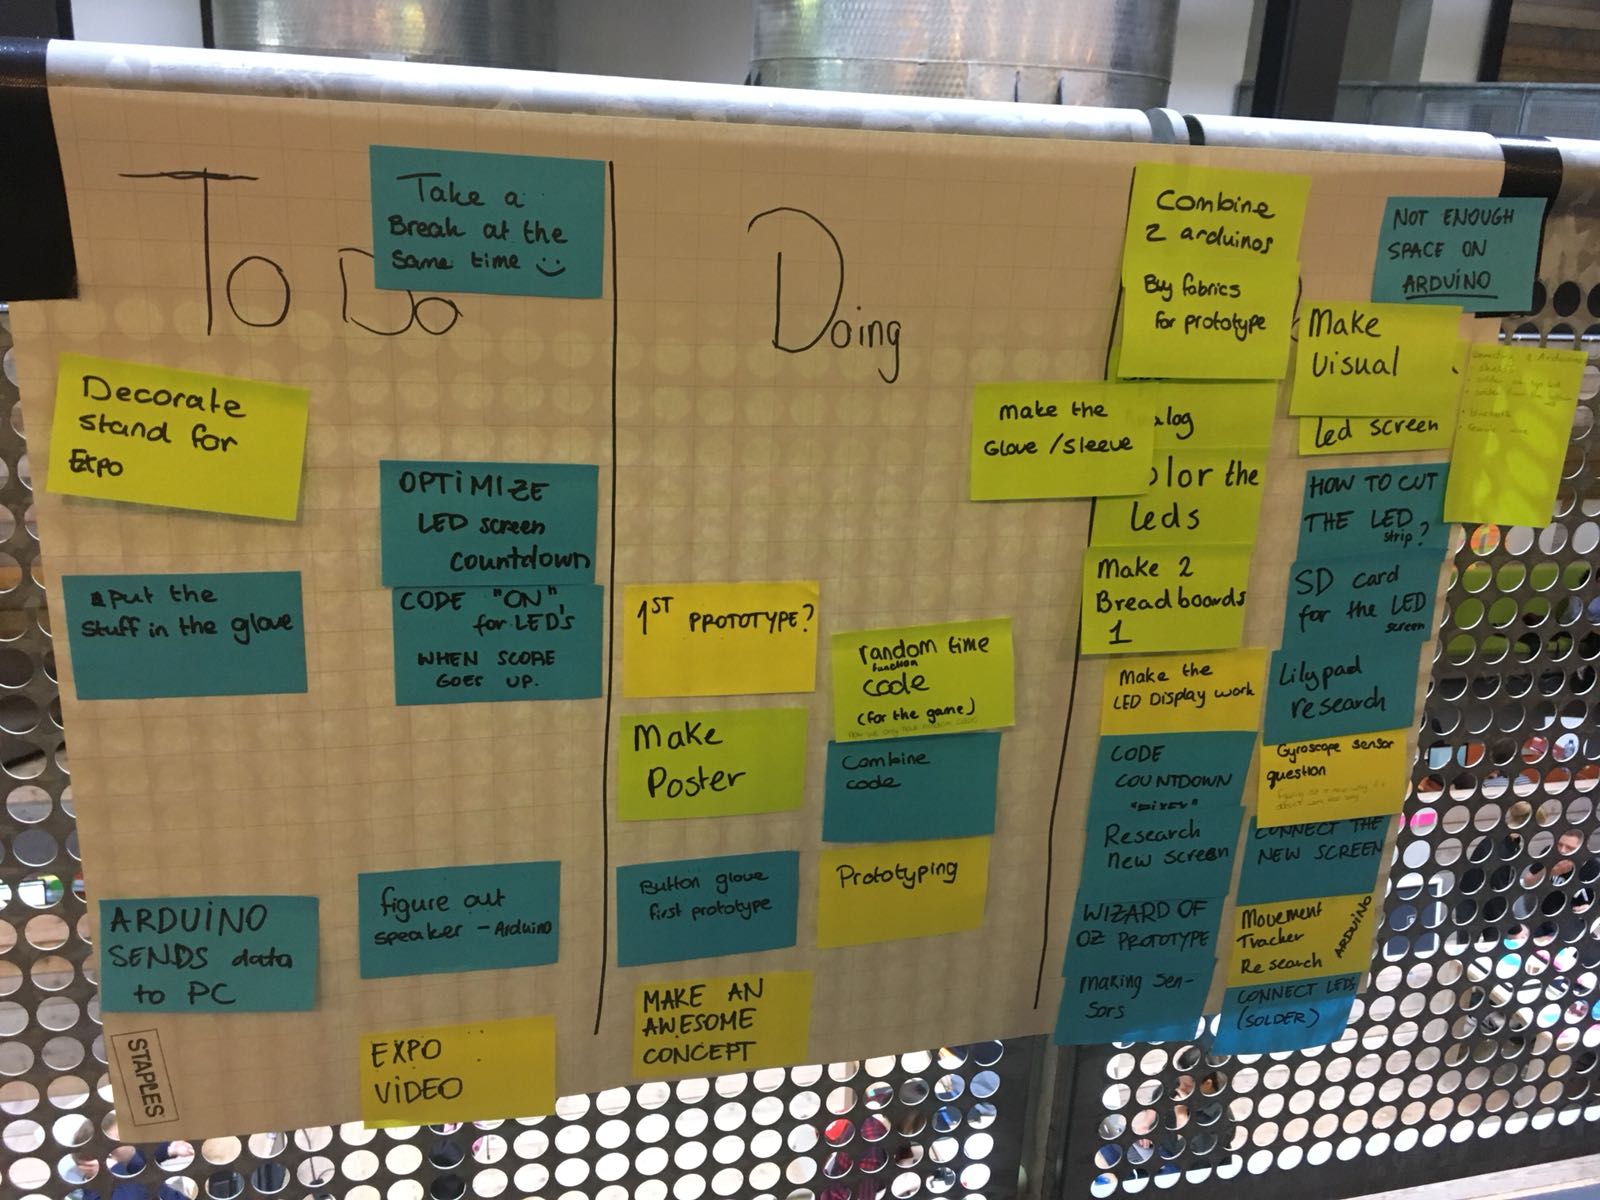 To Do
Take a
Break at the
Same time
Decorate
stand for
Expo
OPTIMIZE
LED screen
countdown
Put the
stuff in the glove
CODE "ON"
for LED's
WHEN SCORE
GOES UP.
ARDUINO
SENDS data
to PC
figure out
speaker - Arduino
EXPO
VIDEO
STAPLES
Doing
1ST PROTOTYPE?
random time
function
code
(for the game)
Make
Poster
Combine
code
Button glove
first prototype
Prototyping
MAKE AN
AWESOME
CONCEPT
make the
Glove / Sleeve
Combine
2 arduinos
Buy fabrics
for prototype
alog
lor the
leds
Make 2
Breadboards
1
Make the
LED Display work
CODE
COUNTDOWN
Research
new screen
WIZARD OF
OZ PROTOTYPE
making sen-
sors
NOT ENOUGH
SPACE ON
ARDUINO
Make
Visual
led screen
HOW TO CUT
THE LED
strip?
SD card
for the LED
screen
Lilypad
research
Gyroscope sensor
question
CONNECT THE
NEW SCREEN
Movement
Tracker
Research
ARDUINO
CONNECT LEDS
(SOLDER)